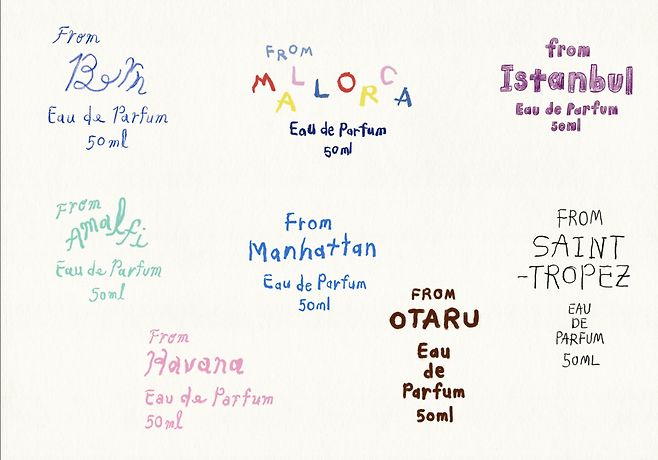 From
Bern
Eau de Parfum
50ml
FROM
MALLORCA
Eau de Parfum
50ml
from
Istanbul
Eau de Parfum
50ml
From
Amalfi
Eau de Parfum
50ml
From
Manhattan
Eau de Parfum
50ml
FROM
SAINT
-TROPEZ
EAU
DE
PARFUM
50ML
From
Havana
Eau de Parfum
50ml
FROM
OTARU
Eau
de
Parfum
50ml